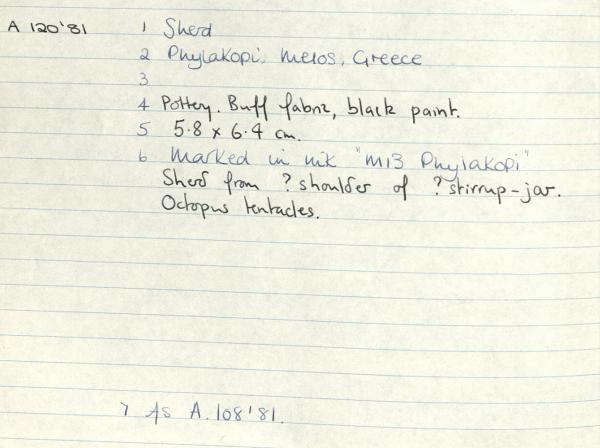 A 120'81 1 Sherd
2 Phylakopi. Melos, Greece
3
4 Pottery. Buff fabric, black paint.
5 5.8 x 6.4 cm.
6 Marked in ink "M13 Phylakopi"
Sherd from ? shoulder of ? stirrup-jar.
Octopus tentacles.
7 As A.108'81.